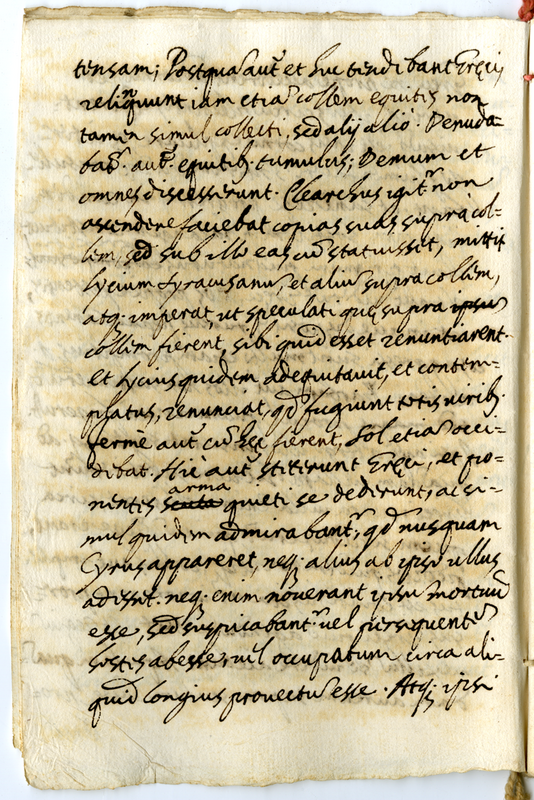 tensam; Postqua̅ aut̅ et huc tendibant Gręci,
relinquunt iam etia̅ collem equites non
tamen simul collecti, sed alij alio. Denuda-
bat̅. aut̅. equitib; tumulus; Demum et
omnes discesserunt. Clearchus igit̅ non
ascendere faciebat copias suas supra col=
lem, sed sub illo eas cu̅ statuisset, mittit
Lycium Syracusanu̅, et aliu̅ supra collem,
atq; imperat, ut speculati quę supra ipsu̅
collem fierent, sibi quid esset renuntiarent.
Et Lycius quidem adequitavit, et contem=
platus, renunciat, qd̅ fugiunt totis uirib;
ferme aut̅ cu̅ hęc fierent, Sol etia̅ occi=
dibat. Hic aut̅ stiterunt Gręci, et po=
nentes scuta arma quieti se dederunt, ac si=
mul quidem admirabant̅, qd̅ nusquam
Cyrus appareret, neq; alius ab ipso ullus
adisset. neq; enim noverant ipsu̅ mortuu̅
esse, sed suspicabant̅ uel persequente̅
hostes abesse, uel occupatum circa ali=
quid longius provectu̅ esse. Atq; ipsi